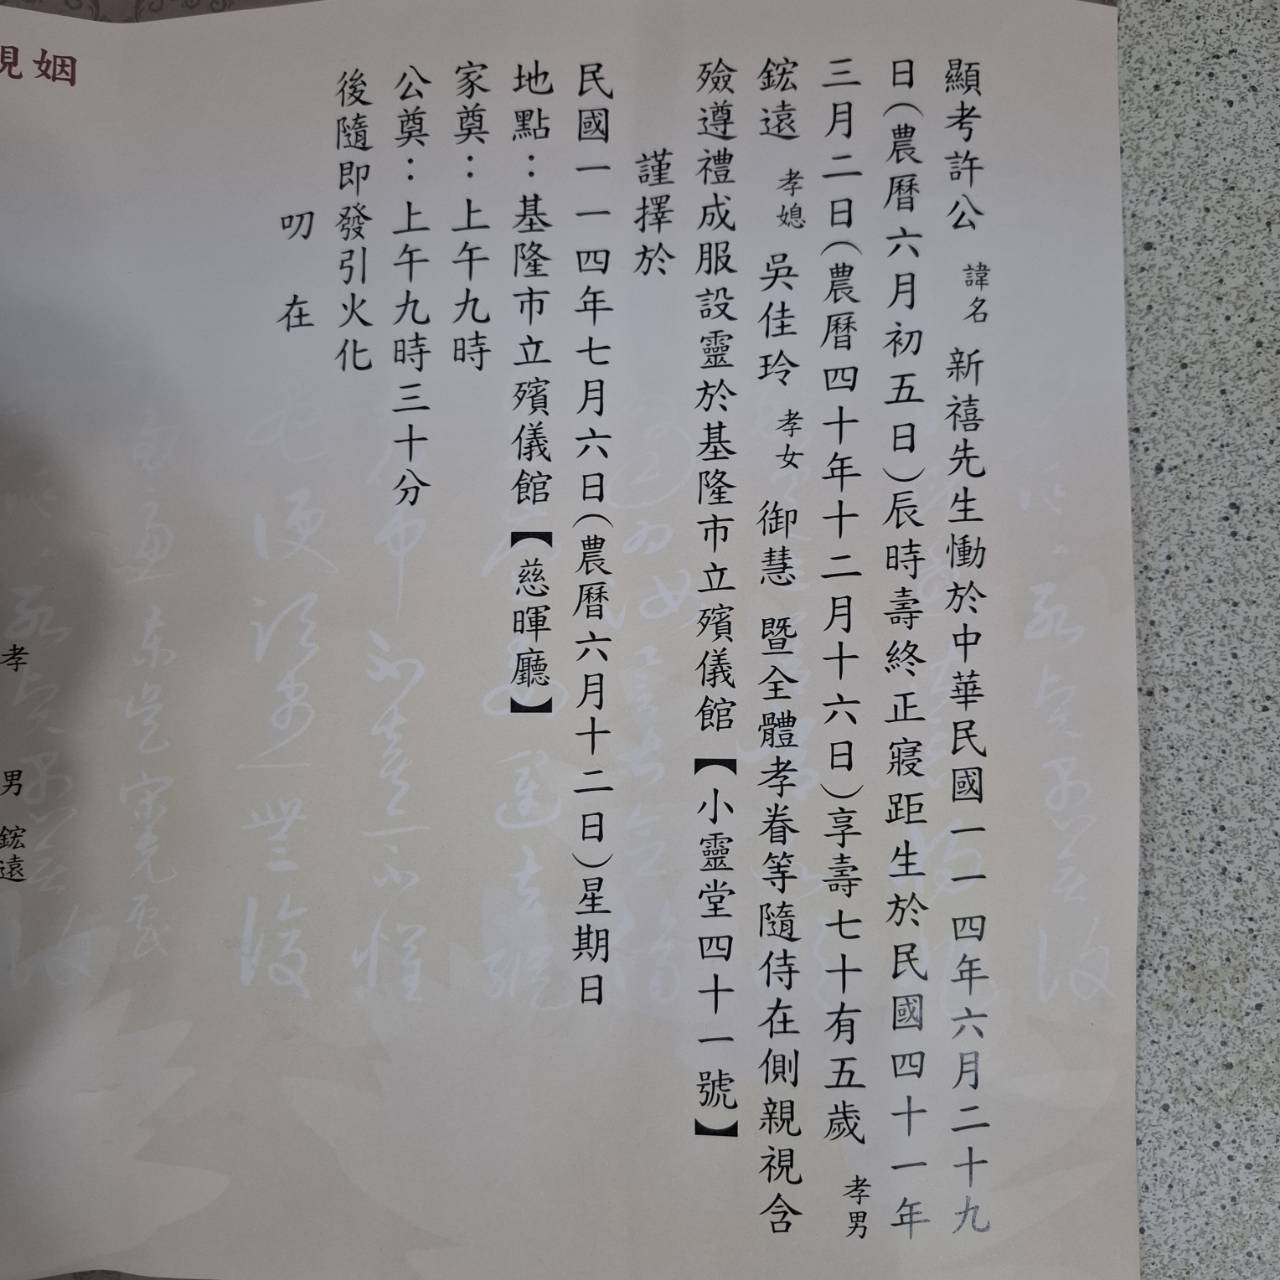 顯考許公 諱名 新禧先生慟於中華民國一一四年六月二十九
日(農曆六月初五日)辰時壽終正寢距生於民國四十一年
三月二日(農曆四十年十二月十六日)享壽七十有五歲 孝男
鋐遠 孝媳 吳佳玲 孝女 御慧 暨全體孝眷等隨侍在側親視含
殮遵禮成服設靈於基隆市立殯儀館【小靈堂四十一號】
謹擇於
民國一一四年七月六日(農曆六月十二日)星期日
地點:基隆市立殯儀館【慈暉廳】
家奠:上午九時
公奠:上午九時三十分
後隨即發引火化
叨 在
姻
孝 男 鋐遠